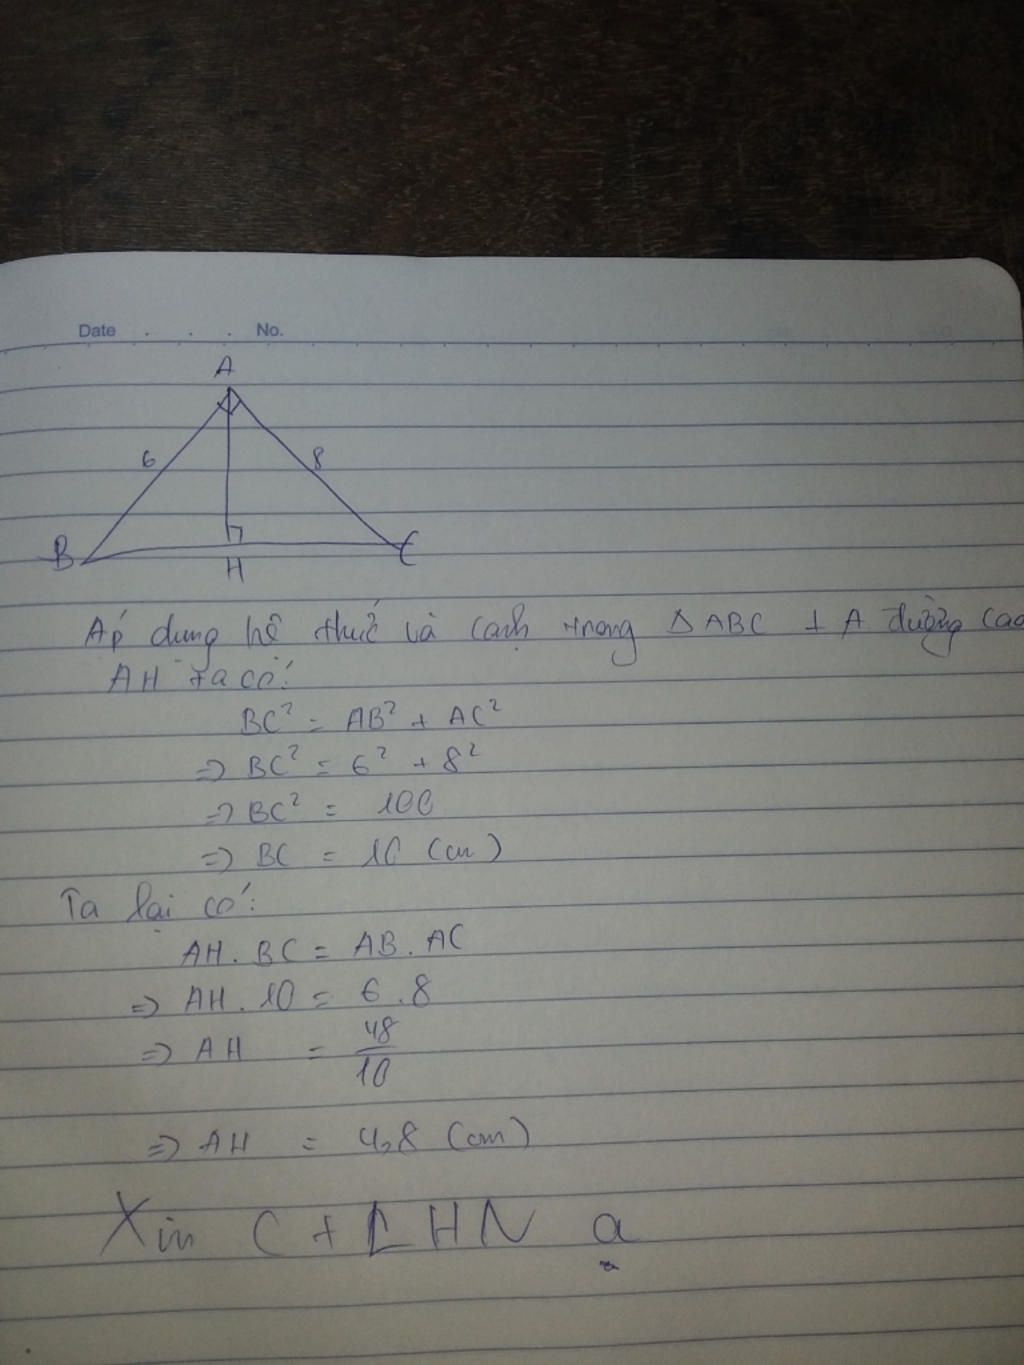 Date . . . No.
A
6 8
B H C
Áp dụng hệ thức và cạnh trong Δ ABC ⊥ A đường cao
AH ta có:
BC² = AB² + AC²
=> BC² = 6² + 8²
=> BC² = 100
=> BC = 10 (cm)
Ta lại có:
AH . BC = AB . AC
=> AH . 10 = 6 . 8
=> AH = 48/10
=> AH = 4,8 (cm)
Xin C + LHN ạ